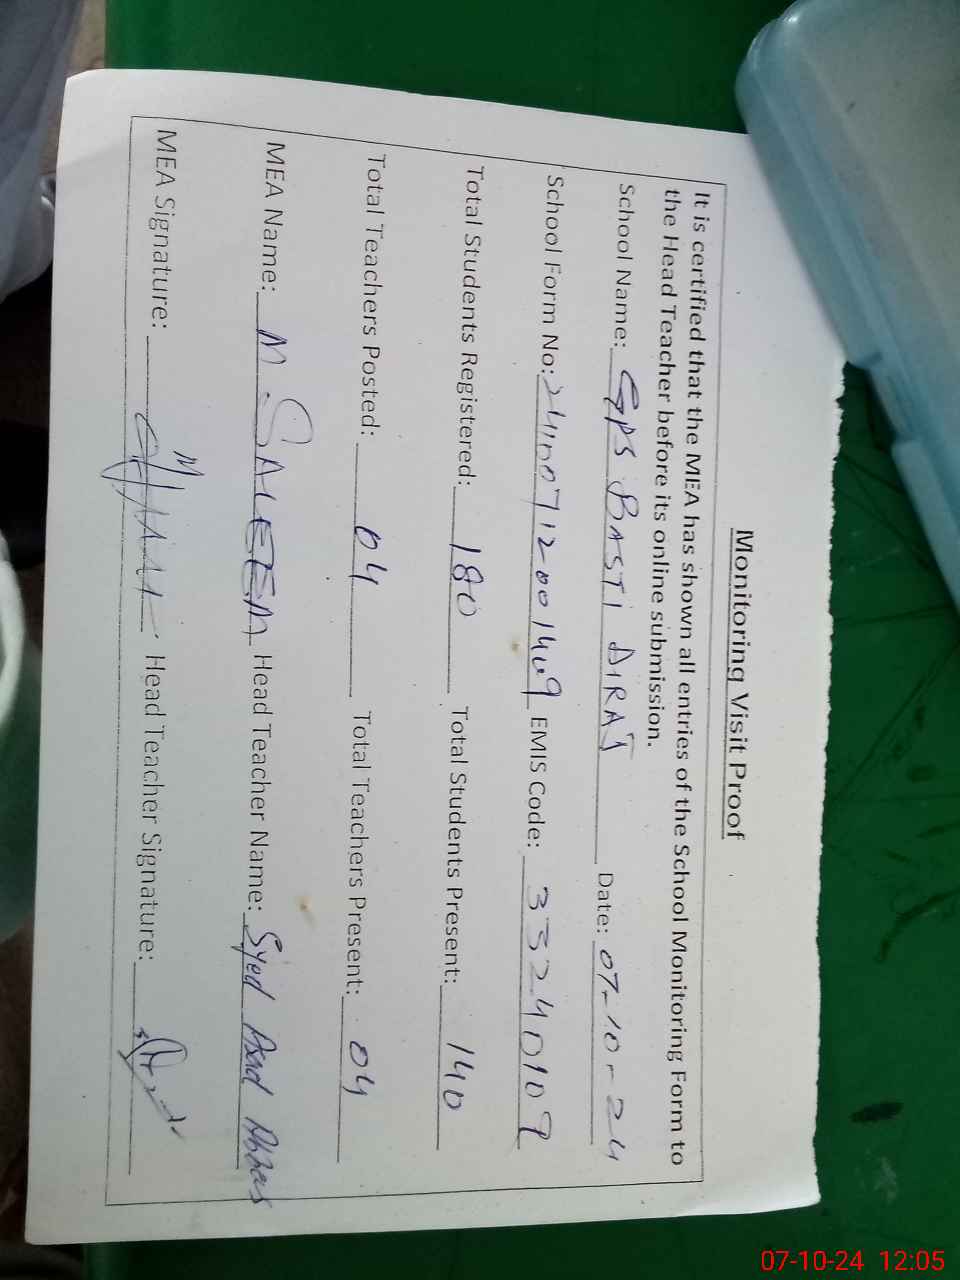 Monitoring Visit Proof
It is certified that the MEA has shown all entries of the School Monitoring Form to
the Head Teacher before its online submission.
School Name: GPS BASTI DIRAJ Date: 07-10-24
School Form No: EMIS Code: 33240109
Total Students Registered: 180 Total Students Present: 140
Total Teachers Posted: 04 Total Teachers Present: 04
MEA Name: M. SALEEM Head Teacher Name: Syed Asad Abbas
MEA Signature: Head Teacher Signature:
07-10-24 12:05